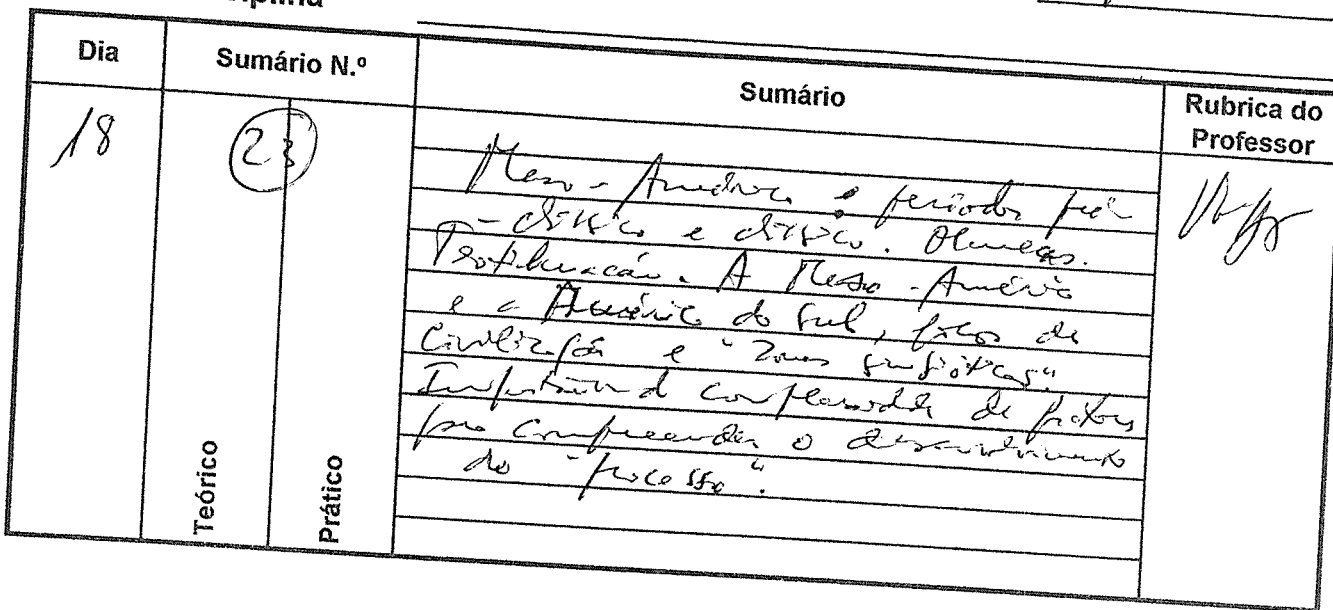 Dia
Sumário N.º
Sumário
Rubrica do
Professor
18
23
Meso-América: períodos pré
-clássico e clássico. Olmecas.
Teotihuacán. A Meso-América
e a América do Sul, focos de
civilização e "Zonas simbióticas".
complexidade de factores
para compreender o desenvolvimento
do "processo".
Teórico
Prático